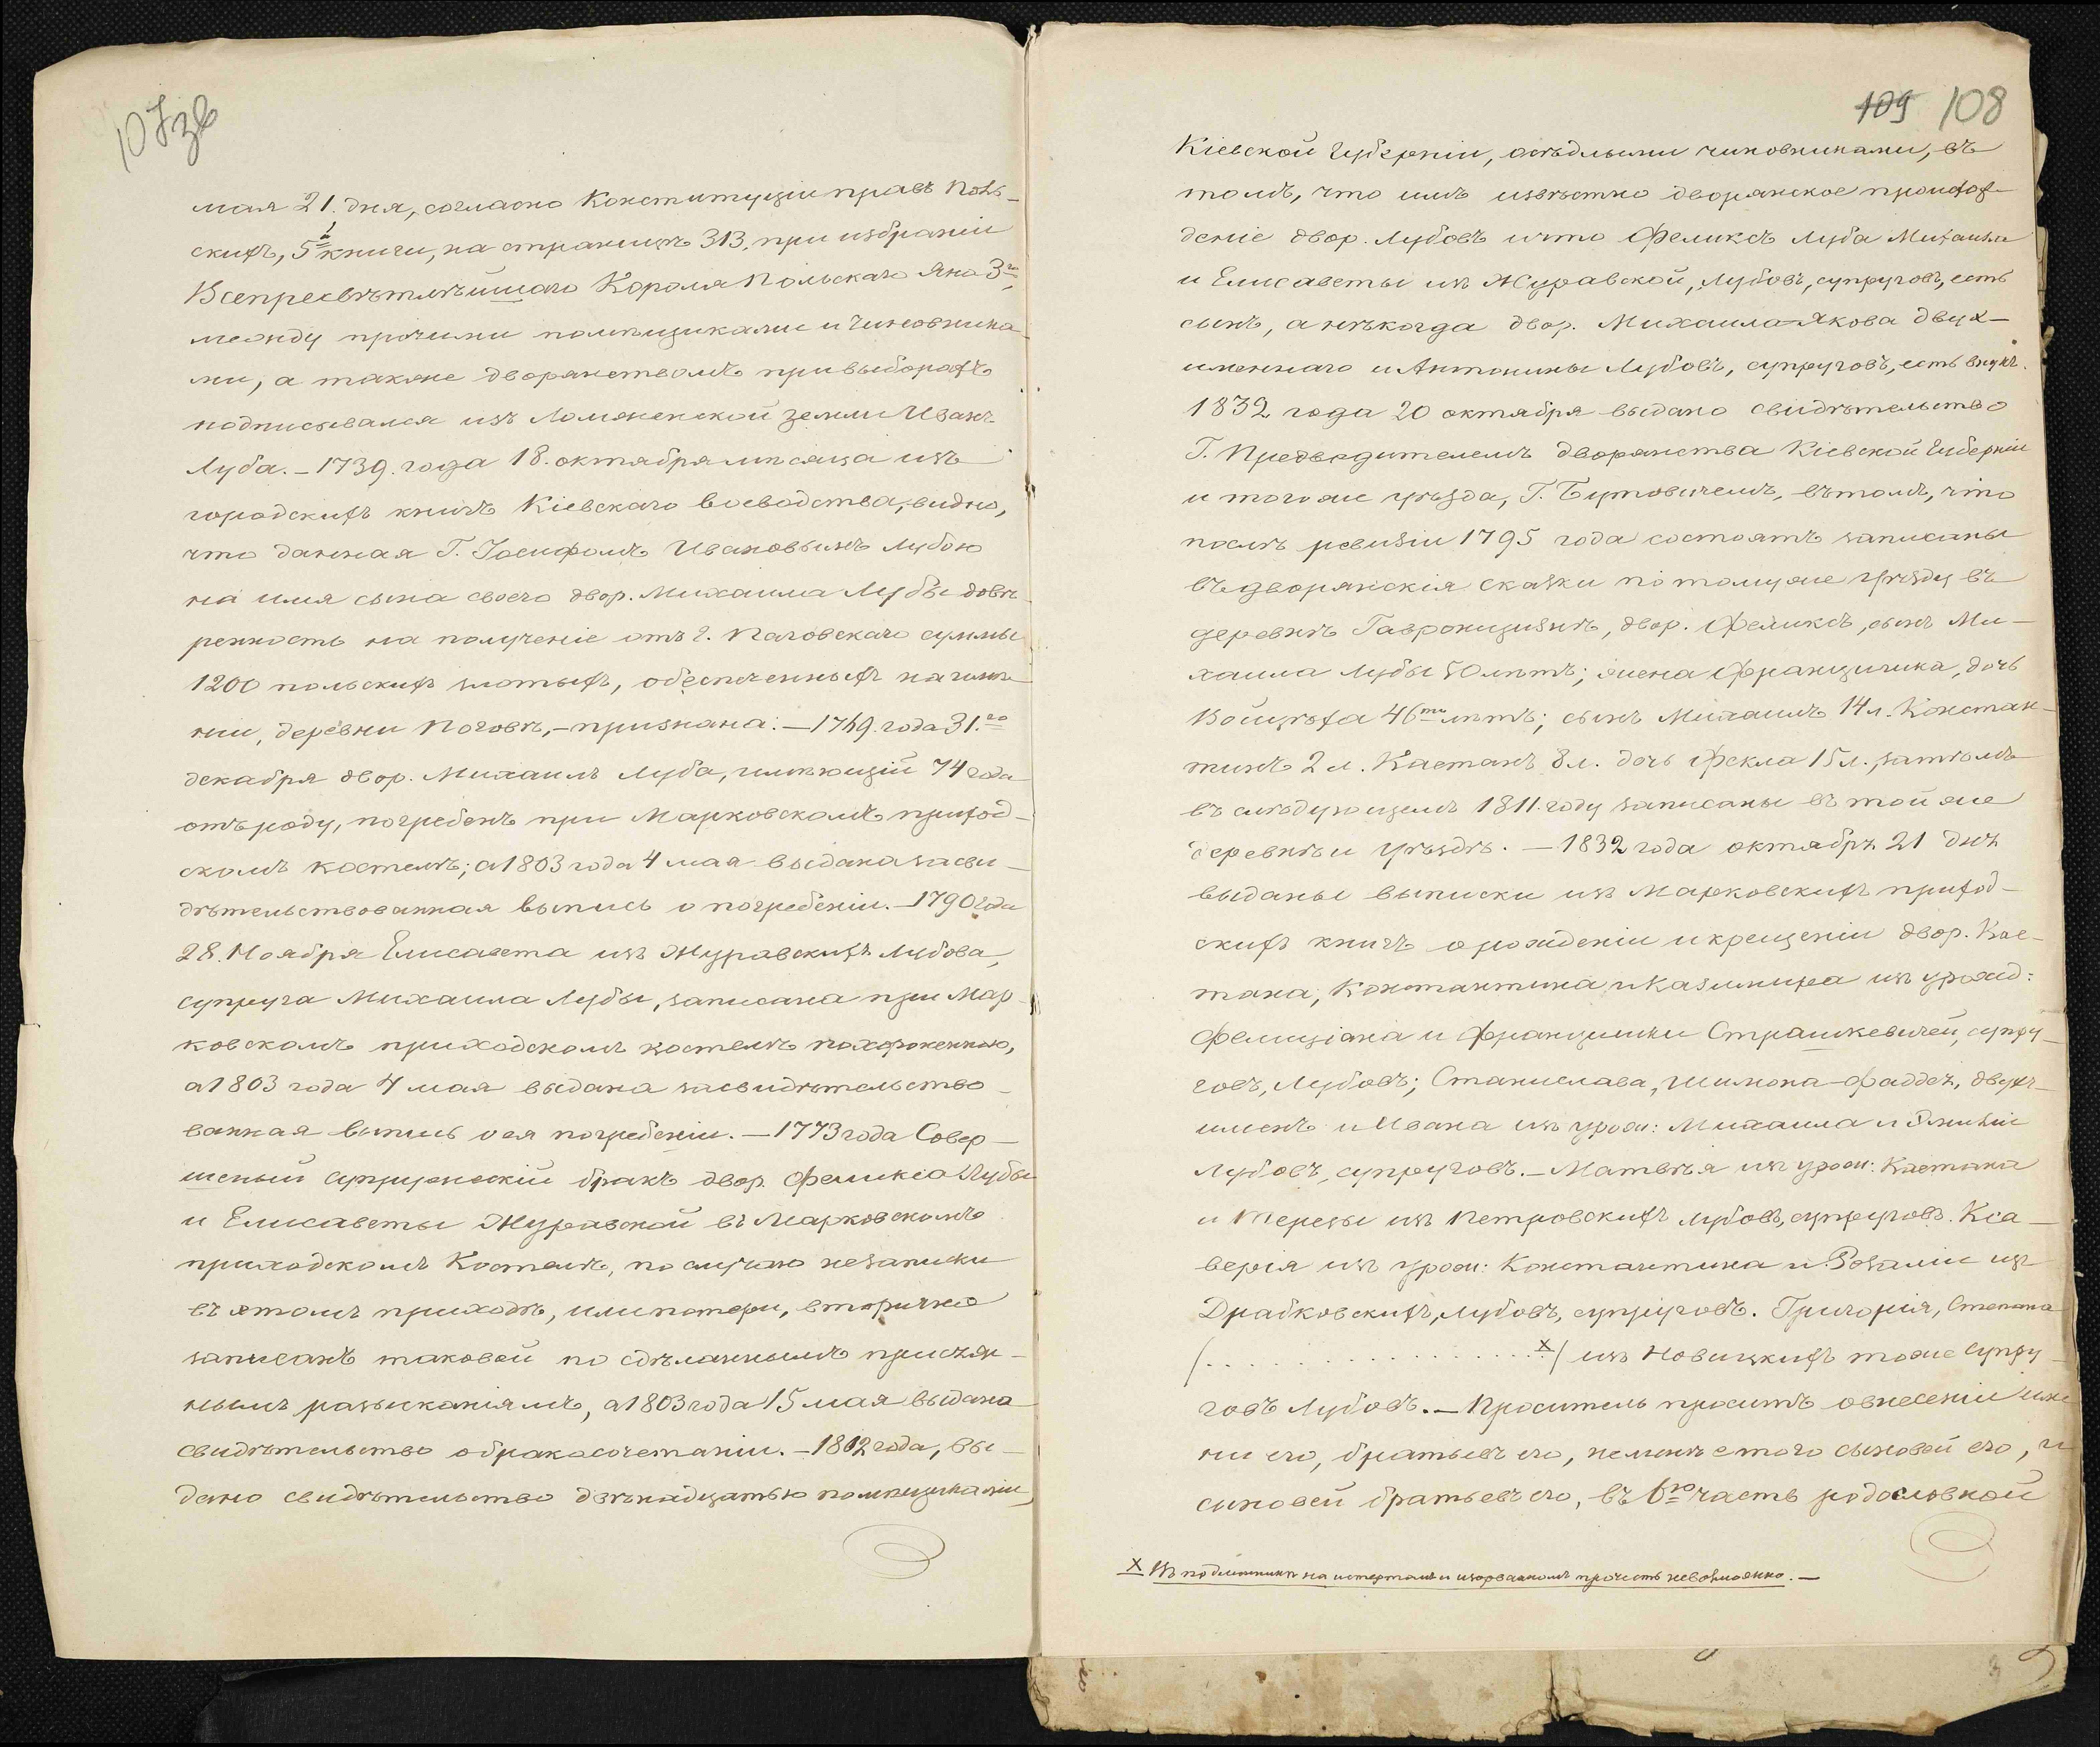 107 зв
мая 21. дня, согласно Конституціи правъ поль-
скихъ, 5й книги, на страницѣ 313, при избраніи
Всепресвѣтлѣйшаго Короля Польскаго Яна 3го,
между прочими помѣщиками и чиновника-
ми, а также дворянствомъ при выборахъ
подписывался изъ Ломженской земли Иванъ
Луба. – 1739. года 18. октября мѣсяца изъ
городскихъ книгъ Кіевскаго воеводства, видно,
что данная Г. Іосифомъ Ивановымъ Лубою
на имя сына своего двор. Михаила Лубы довѣ-
ренность на полученіе отъ г. Паговскаго суммы
1200 польскихъ злотыхъ, обеспеченныхъ на имѣ-
ніи, деревни Поговѣ, – признана. – 1769. года 31.го
декабря двор. Михаилъ Луба, имѣющій 74 года
отъ роду, погребенъ при Марковскомъ приход-
скомъ костелѣ; а 1803 года 4 мая выдана засви-
дѣтельствованная выпись о погребеніи. – 1790 года
28. Ноября Елисавета изъ Журавскихъ Лубова,
супруга Михаила Лубы, записана при Мар-
ковскомъ приходскомъ костелѣ похороненною,
а 1803 года 4 мая выдана засвидѣтельство-
ванная выпись о ея погребеніи. – 1773 года Совер-
шеный супружескій бракъ двор. Феликса Лубы
и Елисаветы Журавской въ Марковскомъ
приходскомъ Костелѣ, по случаю незаписки
въ этомъ приходѣ, или потери, вторично
записанъ таковой по сдѣланнымъ присяж-
нымъ разысканіямъ, а 1803 года 15 мая выдано
свидѣтельство о бракосочетаніи. – 1802 года, вы-
дано свидѣтельство двѣнадцатью помѣщиками,
109 108
Кіевской Губерніи, осѣдлыми чиновниками, въ
томъ, что имъ извѣстно дворянское происхож-
деніе двор. Лубовъ и что Феликсъ Луба Михаила
и Елисаветы изъ Журавской, Лубовъ, супруговъ, есть
сынъ, а нѣкогда двор. Михаила-Якова двух-
именнаго и Антонины Лубовъ, супруговъ, есть внукъ.
1832 года 20 октября выдано свидѣтельство
Г. Предводителемъ дворянства Кіевской Губерніи
и того же уѣзда, Г. Бутовичемъ, въ томъ, что
послѣ ревизіи 1795 года состоятъ записаны
въ дворянскія сказки по тому же уѣзду въ
деревнѣ Гавронщизнѣ, двор. Феликсъ, сынъ Ми-
хаила Лубы 50 лѣтъ; жена Францишка, дочь
Войцѣха 46ти лѣтъ; сынъ Михаилъ 14 л. Констан-
тинъ 2 л. Каетанъ 8 л. дочь Фекла 15 л., затѣмъ
въ слѣдующемъ 1811. году записаны въ той же
деревнѣ и уѣздѣ. – 1832 года октября 21 дня
выданы выписки изъ Марковскихъ приход-
скихъ книгъ о рожденіи и крещеніи двор. Кае-
тана, Константина и Казимира изъ урожд:
Фелиціана и Францишки Страшкевичей, супру-
говъ, Лубовъ; Станислава, Шимона-Фаддея, двухъ
именъ и Ивана изъ урож: Михаила и Эмиліи
Лубовъ, супруговъ. – Матвѣя изъ урож: Каетана
и Терезы изъ Петровскихъ Лубовъ, супруговъ. Кса-
верія изъ урож: Константина и Розаліи изъ
Драбковскихъ, Лубовъ, супруговъ. Григорія, Степана
/. . . . . . . . . . . . . . . . . х/ изъ Новицкихъ тоже супру-
говъ Лубовъ. – Проситель проситъ о внесеніи име-
ни его, братьевъ его, не менѣе того сыновей его, и
сыновей братьевъ его, въ 6ю часть родословной
х Въ подлинникѣ на истертомъ и изорванномъ прочесть невозможно. –